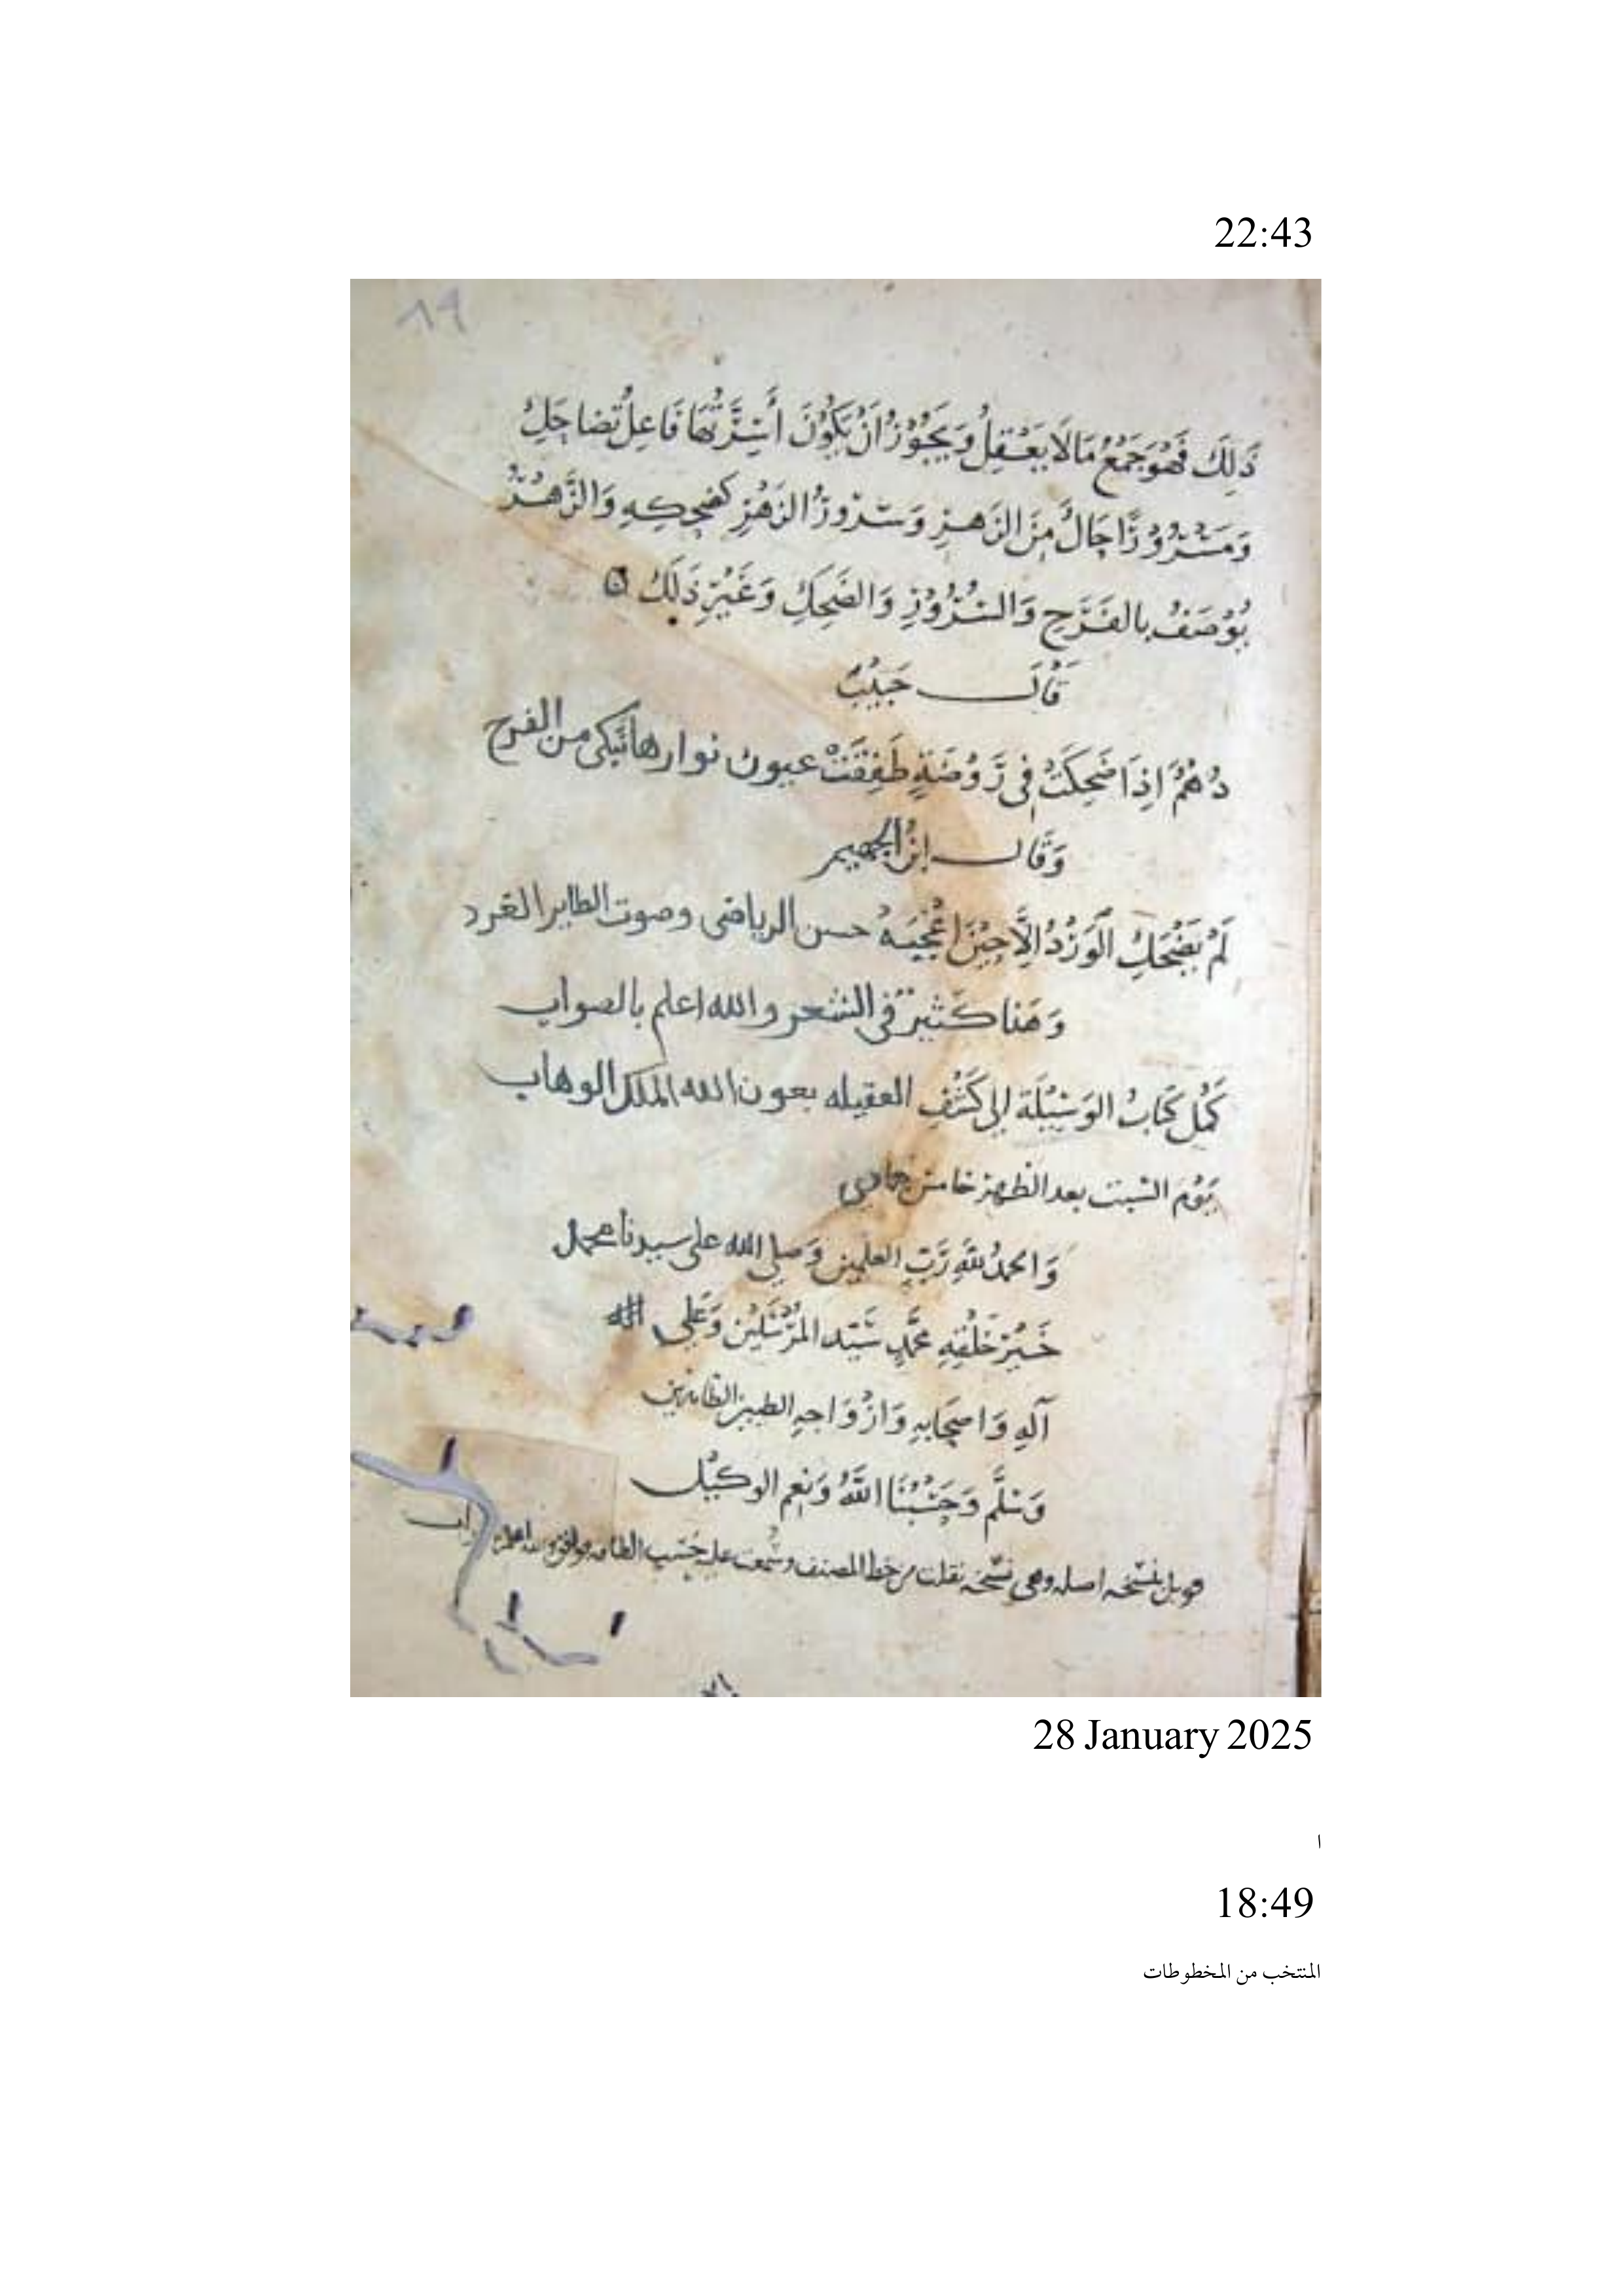 22:43
٨٩
ذَلِكَ فَهُوَ جَمْعُ مَا لَا يَعْقِلُ وَيَجُوْزُ أَنْ يَكُوْنَ أَسِرَّتُهَا فَاعِلُ تضاحِكُ
وَمَسْرُوْرًا حَالٌ مِنَ الزَهرِ وَسُرُورُ الزَهْرِ كضحِكِهِ وَالزَّهْرُ
يُوْصَفُ بِالفَرَحِ وَالسُرُوْرِ وَالضَحِكِ وَغَيْرِ ذَلَكَ ه
قَالَ حَبِيْبٌ
دُهْمٌ اِذَا ضَحِكَتْ فِي رَوْضَةٍ طَفِقَتْ عيون نوارها تَبكى من الفرح
وَقَال ابْنُ الجهيم
لَمْ يَضْحَكِ الوَرْدُ اِلَّا حِيْنَ اَعْجَبَهُ حسن الرياض وصوت الطاير الغرد
وَهَذا كَثيرٌ فى الشعر والله اعلم بالصواب
كَمُلَ كِتَابُ الوَسِيْلَة اِلى كَشْفِ العقيله بعون الله الملك الوهاب
يَوْمَ السَبت بعد الظهر خامس جمادى
وَالحمدُ للهِ رَبِّ العلمين وَصلى الله على سيدنا محمد
خَيْرِ خَلْقِهِ مُحَمَّدٍ سَيّد المُرْسَلِيْنَ وَعَلى
آلِهِ وَاصحَابِهِ وَازْوَاجِهِ الطيبين الطاهرين
وَسَلَّم وَحَسْبُنَا اللهُ وَنِعم الوكيْل
قوبل بنسخه اصله وهى نسْخه نقلت من خط المصنف وسُمعت عليه حَسَب الطاقه
28 January 2025
ا
18:49
المنتخب من المخطوطات